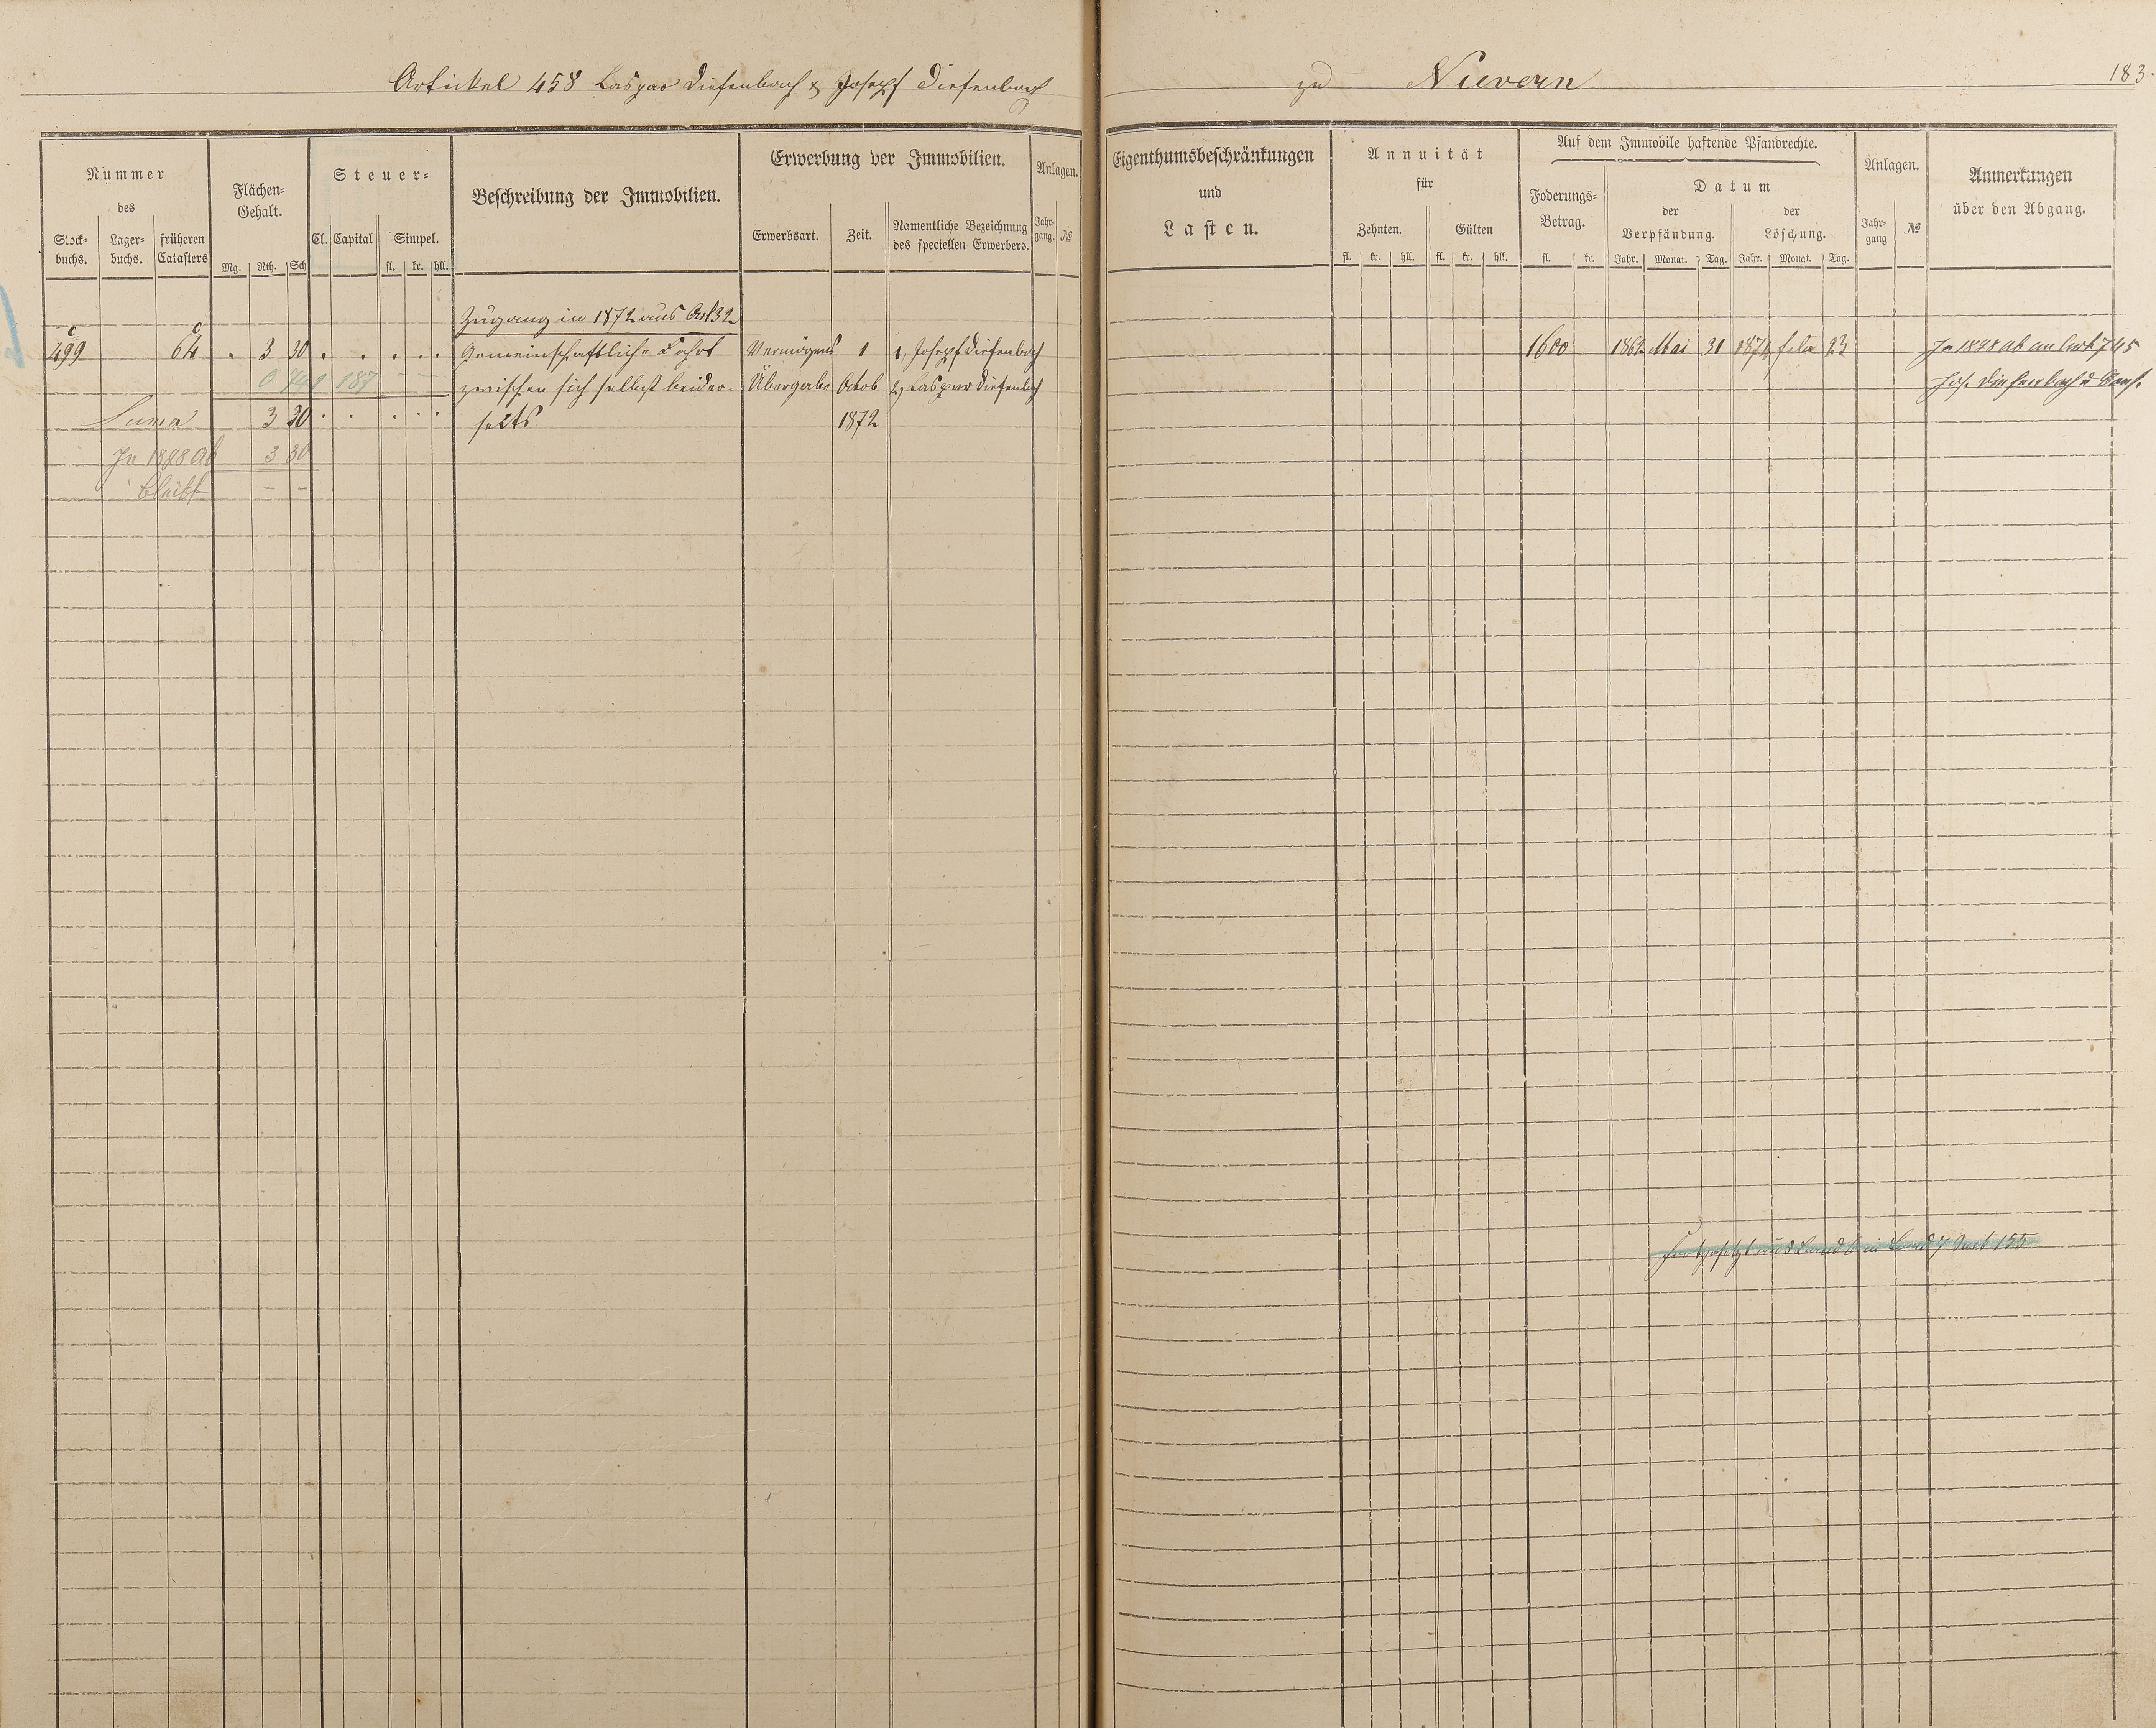 Artickel 458 Caspar Diefenbach & Joseph Diefenbach
zu Nievern
183.
Nummer
des
Stock-
buchs.
Lager-
buchs.
früheren
Catasters
Flächen-
Gehalt.
Mg. Rth. Sch
Steuer-
Cl. Capital Simpel.
fl. kr. hll.
Beschreibung der Immobilien.
Erwerbung der Immobilien.
Erwerbsart. Zeit.
Namentliche Bezeichnung
des speciellen Erwerbers.
Anlagen.
Jahr-
gang. №
Eigenthumsbeschränkungen
und
Lasten.
Annuität
für
Zehnten. Gülten
fl. kr. hll. fl. kr. hll.
Auf dem Immobile haftende Pfandrechte.
Foderungs-
Betrag.
fl. kr.
Datum
der
Verpfändung.
der
Löschung.
Jahr. Monat. Tag. Jahr. Monat. Tag.
Anlagen.
Jahr-
gang №
Anmerkungen
über den Abgang.
Zugang in 1872 aus Art 32
c c
499 64 . 3 30 . . . . . Gemeinschaftliche Fahrt Vermögens 1 1, Joseph Diefenbach 1600 1862 Mai 31 1874 Febr 23 In 1898 ab an Art 745
0 741 187 — — zwischen sich selbst beider- Übergabe Octob 2, Caspar Diefenbach Jos. Diefenbach u Cons.
Suma 3 30 . . . . . seits 1872
In 1898 Ab 3 30
bleibt — —
Fortgesetzt aus Band 6 in Band 7 155